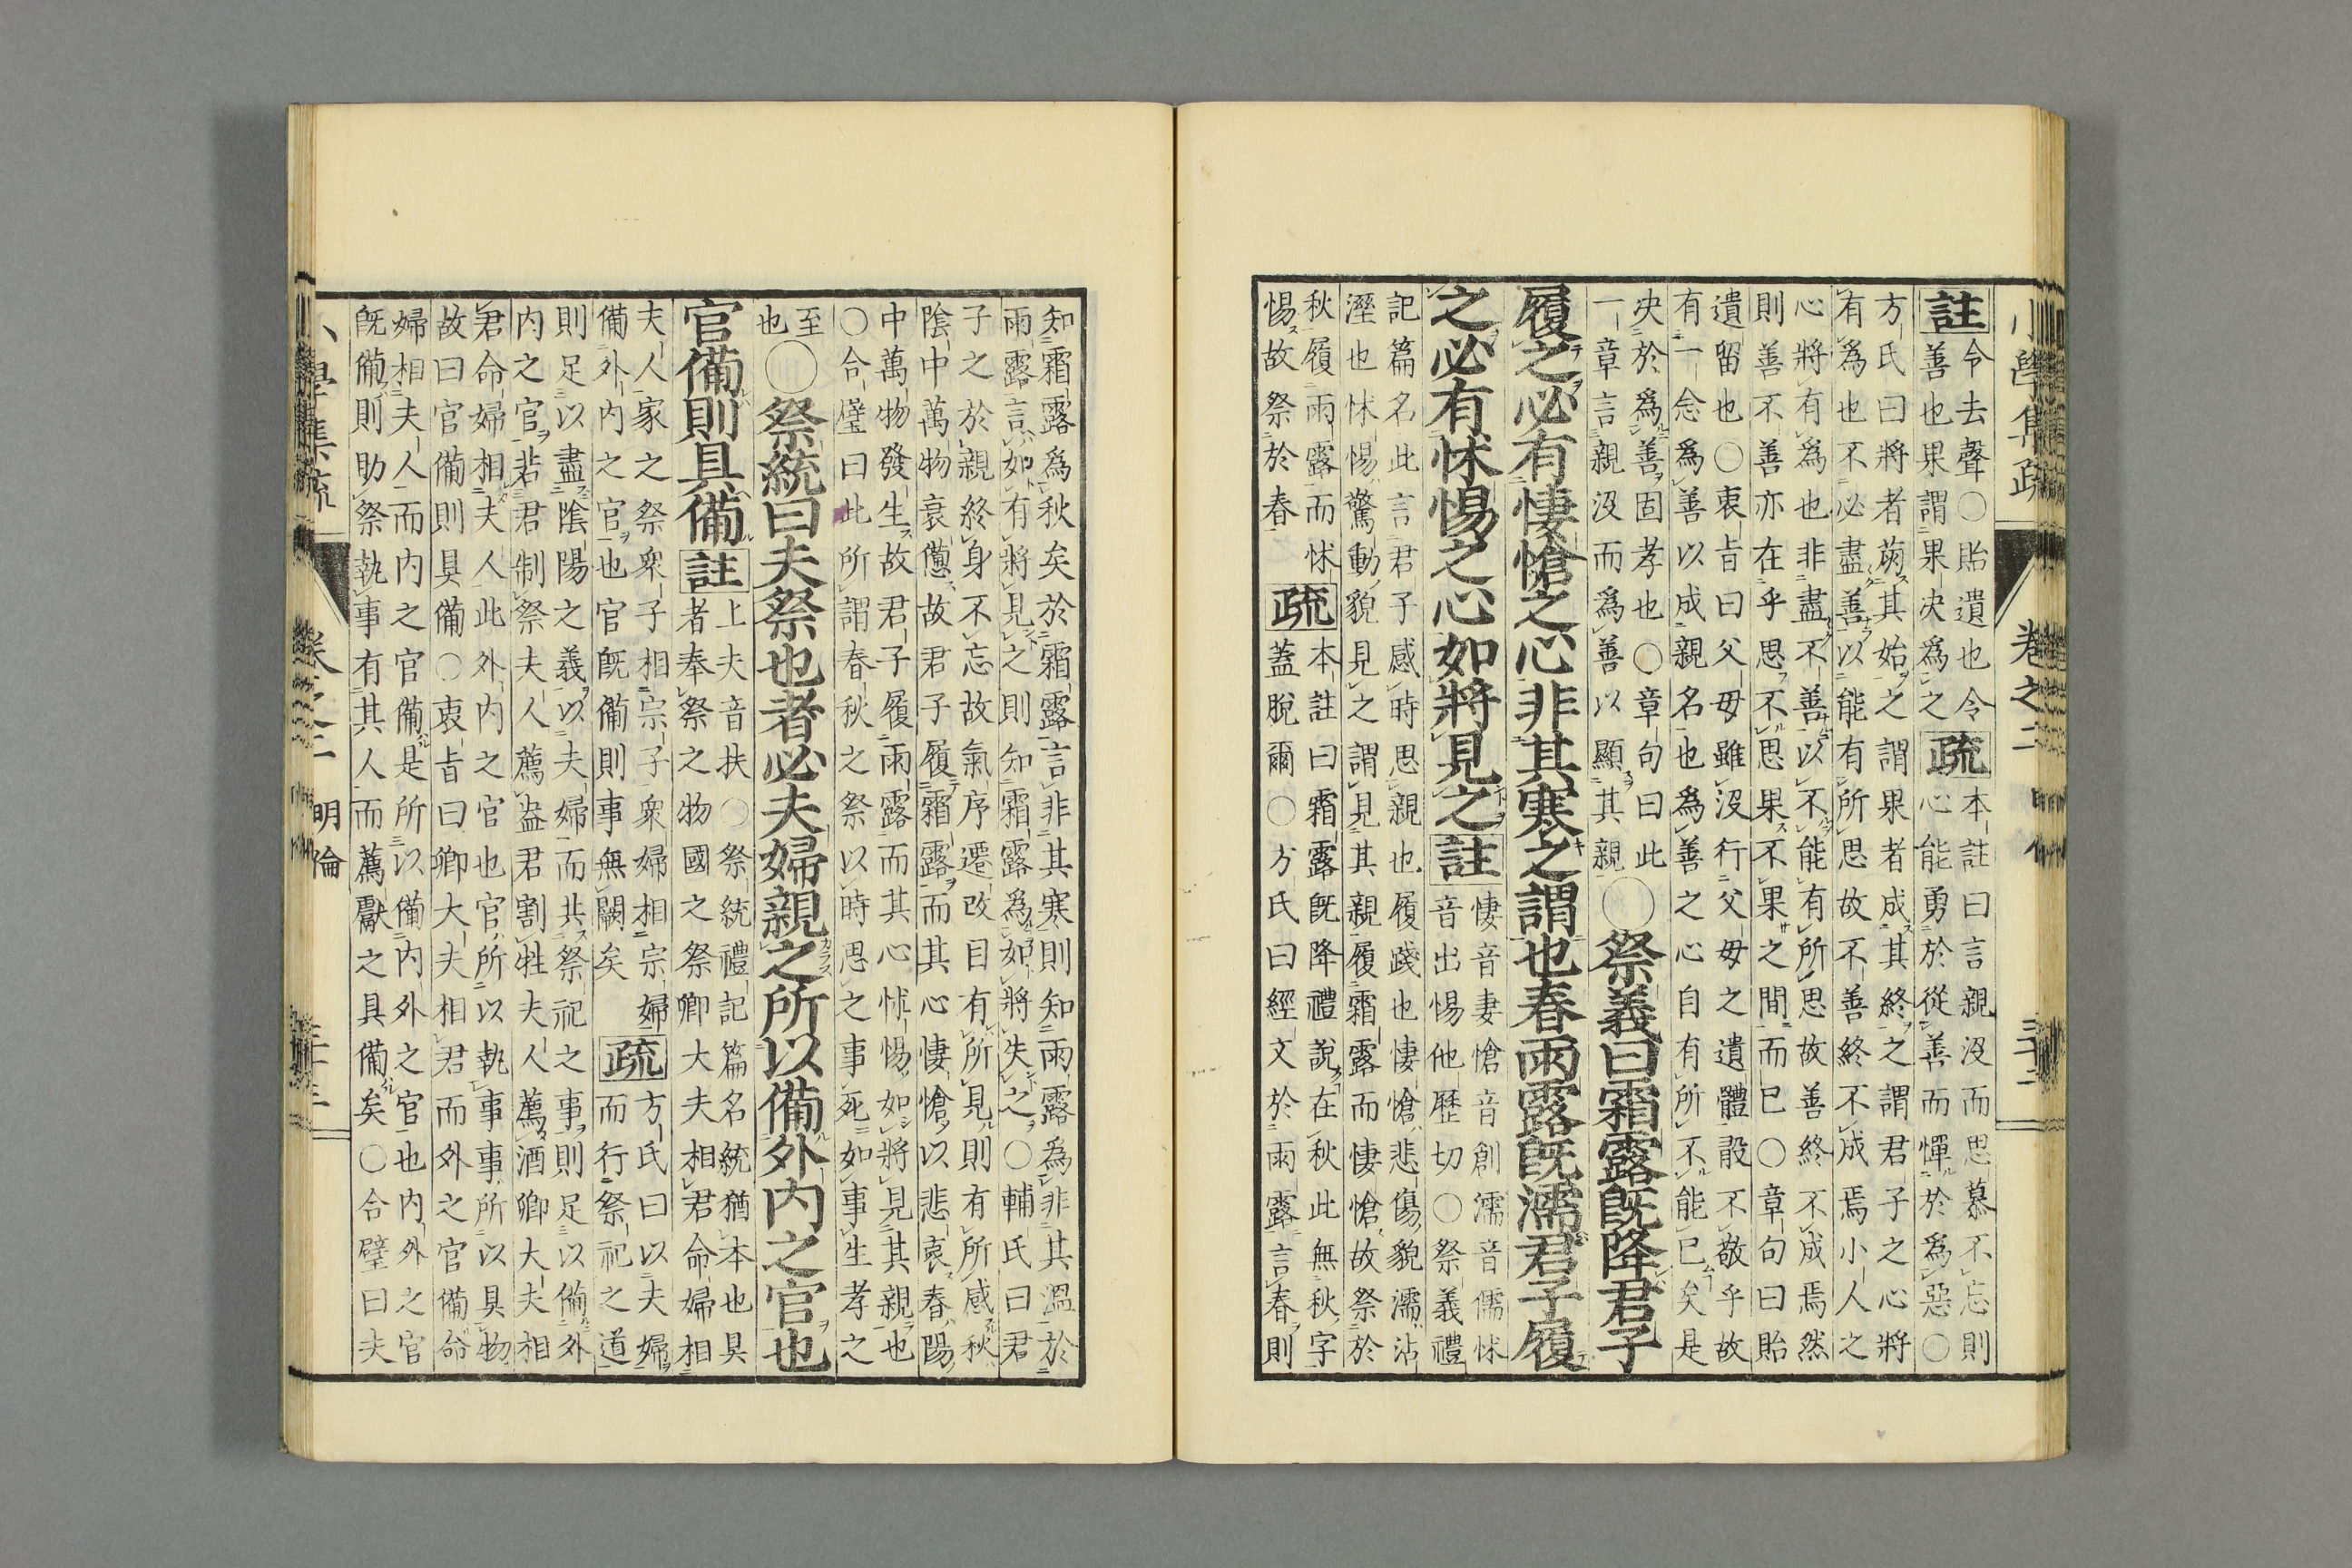 小學集疏 卷之二 明倫 三十二
註 令去聲○貽遺也令
善也果謂果決爲之
疏 本註曰言親沒而思慕不忘則
心能勇於從善而憚於爲惡○
方氏曰將者苟其始之謂果者成其終之謂君子之心將
有爲也不必盡善以能有所思故不善終不成焉小人之
心將有爲也非盡不善以不能有所思故善終不成焉然
則善不善亦在乎思不思果不果之間而已○章句曰貽
遺留也○衷旨曰父母雖沒行父母之遺體設不敬乎故
有一念爲善以成親名也爲善之心自有所不能已矣是
决於爲善固孝也○章句曰此
一章言親沒而爲善以顯其親
○祭義曰霜露既降君子
履之必有悽愴之心非其寒之謂也春雨露既濡君子履
之必有怵惕之心如將見之
註 悽音妻愴音創濡音儒怵
音出惕他歷切○祭義禮
記篇名此言君子感時思親也履踐也悽愴悲傷貌濡沾
溼也怵惕驚動貌見之謂見其親履霜露而悽愴故祭於
秋履雨露而怵
惕故祭於春
疏 本註曰霜露既降禮說在秋此無秋字
蓋脫爾○方氏曰經文於雨露言春則
知霜露爲秋矣於霜露言非其寒則知雨露爲非其溫於
雨露言如有將見之則知霜露爲如將失之○輔氏曰君
子之於親終身不忘故氣序遷改目有所見則有所感秋
陰中萬物衰憊故君子履霜露而其心悽愴以悲哀春陽
中萬物發生故君子履雨露而其心怵惕如將見其親也
○合璧曰此所謂春秋之祭以時思之事死如事生孝之
至
也
○祭統曰夫祭也者必夫婦親之所以備外內之官也
官備則具備
註 上夫音扶○祭統禮記篇名統猶本也具
者奉祭之物國之祭卿大夫相君命婦相
夫人家之祭衆子相宗子衆婦相宗婦
備外內之官也官既備則事無闕矣
疏 方氏曰以夫婦
而行祭祀之道
則足以盡陰陽之義以夫婦而共祭祀之事則足以備外
内之官若君制祭夫人薦盎君割牲夫人薦酒卿大夫相
君命婦相夫人此外内之官也官所以執事事所以具物
故曰官備則具備○衷旨曰卿大夫相君而外之官備命
婦相夫人而内之官備是所以備内外之官也内外之官
既備則助祭執事有其人而薦獻之具備矣○合璧曰夫
明倫